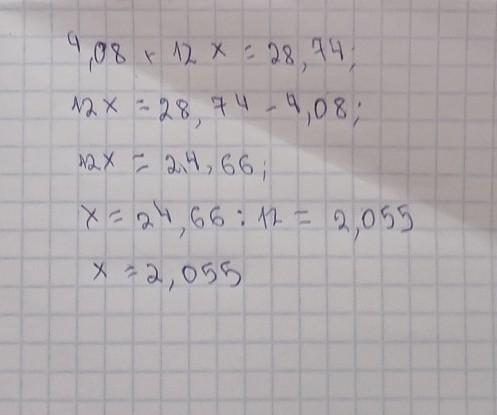 4,08 + 12x = 28,74;
12x = 28,74 - 4,08;
12x = 24,66;
x = 24,66 : 12 = 2,055
x = 2,055